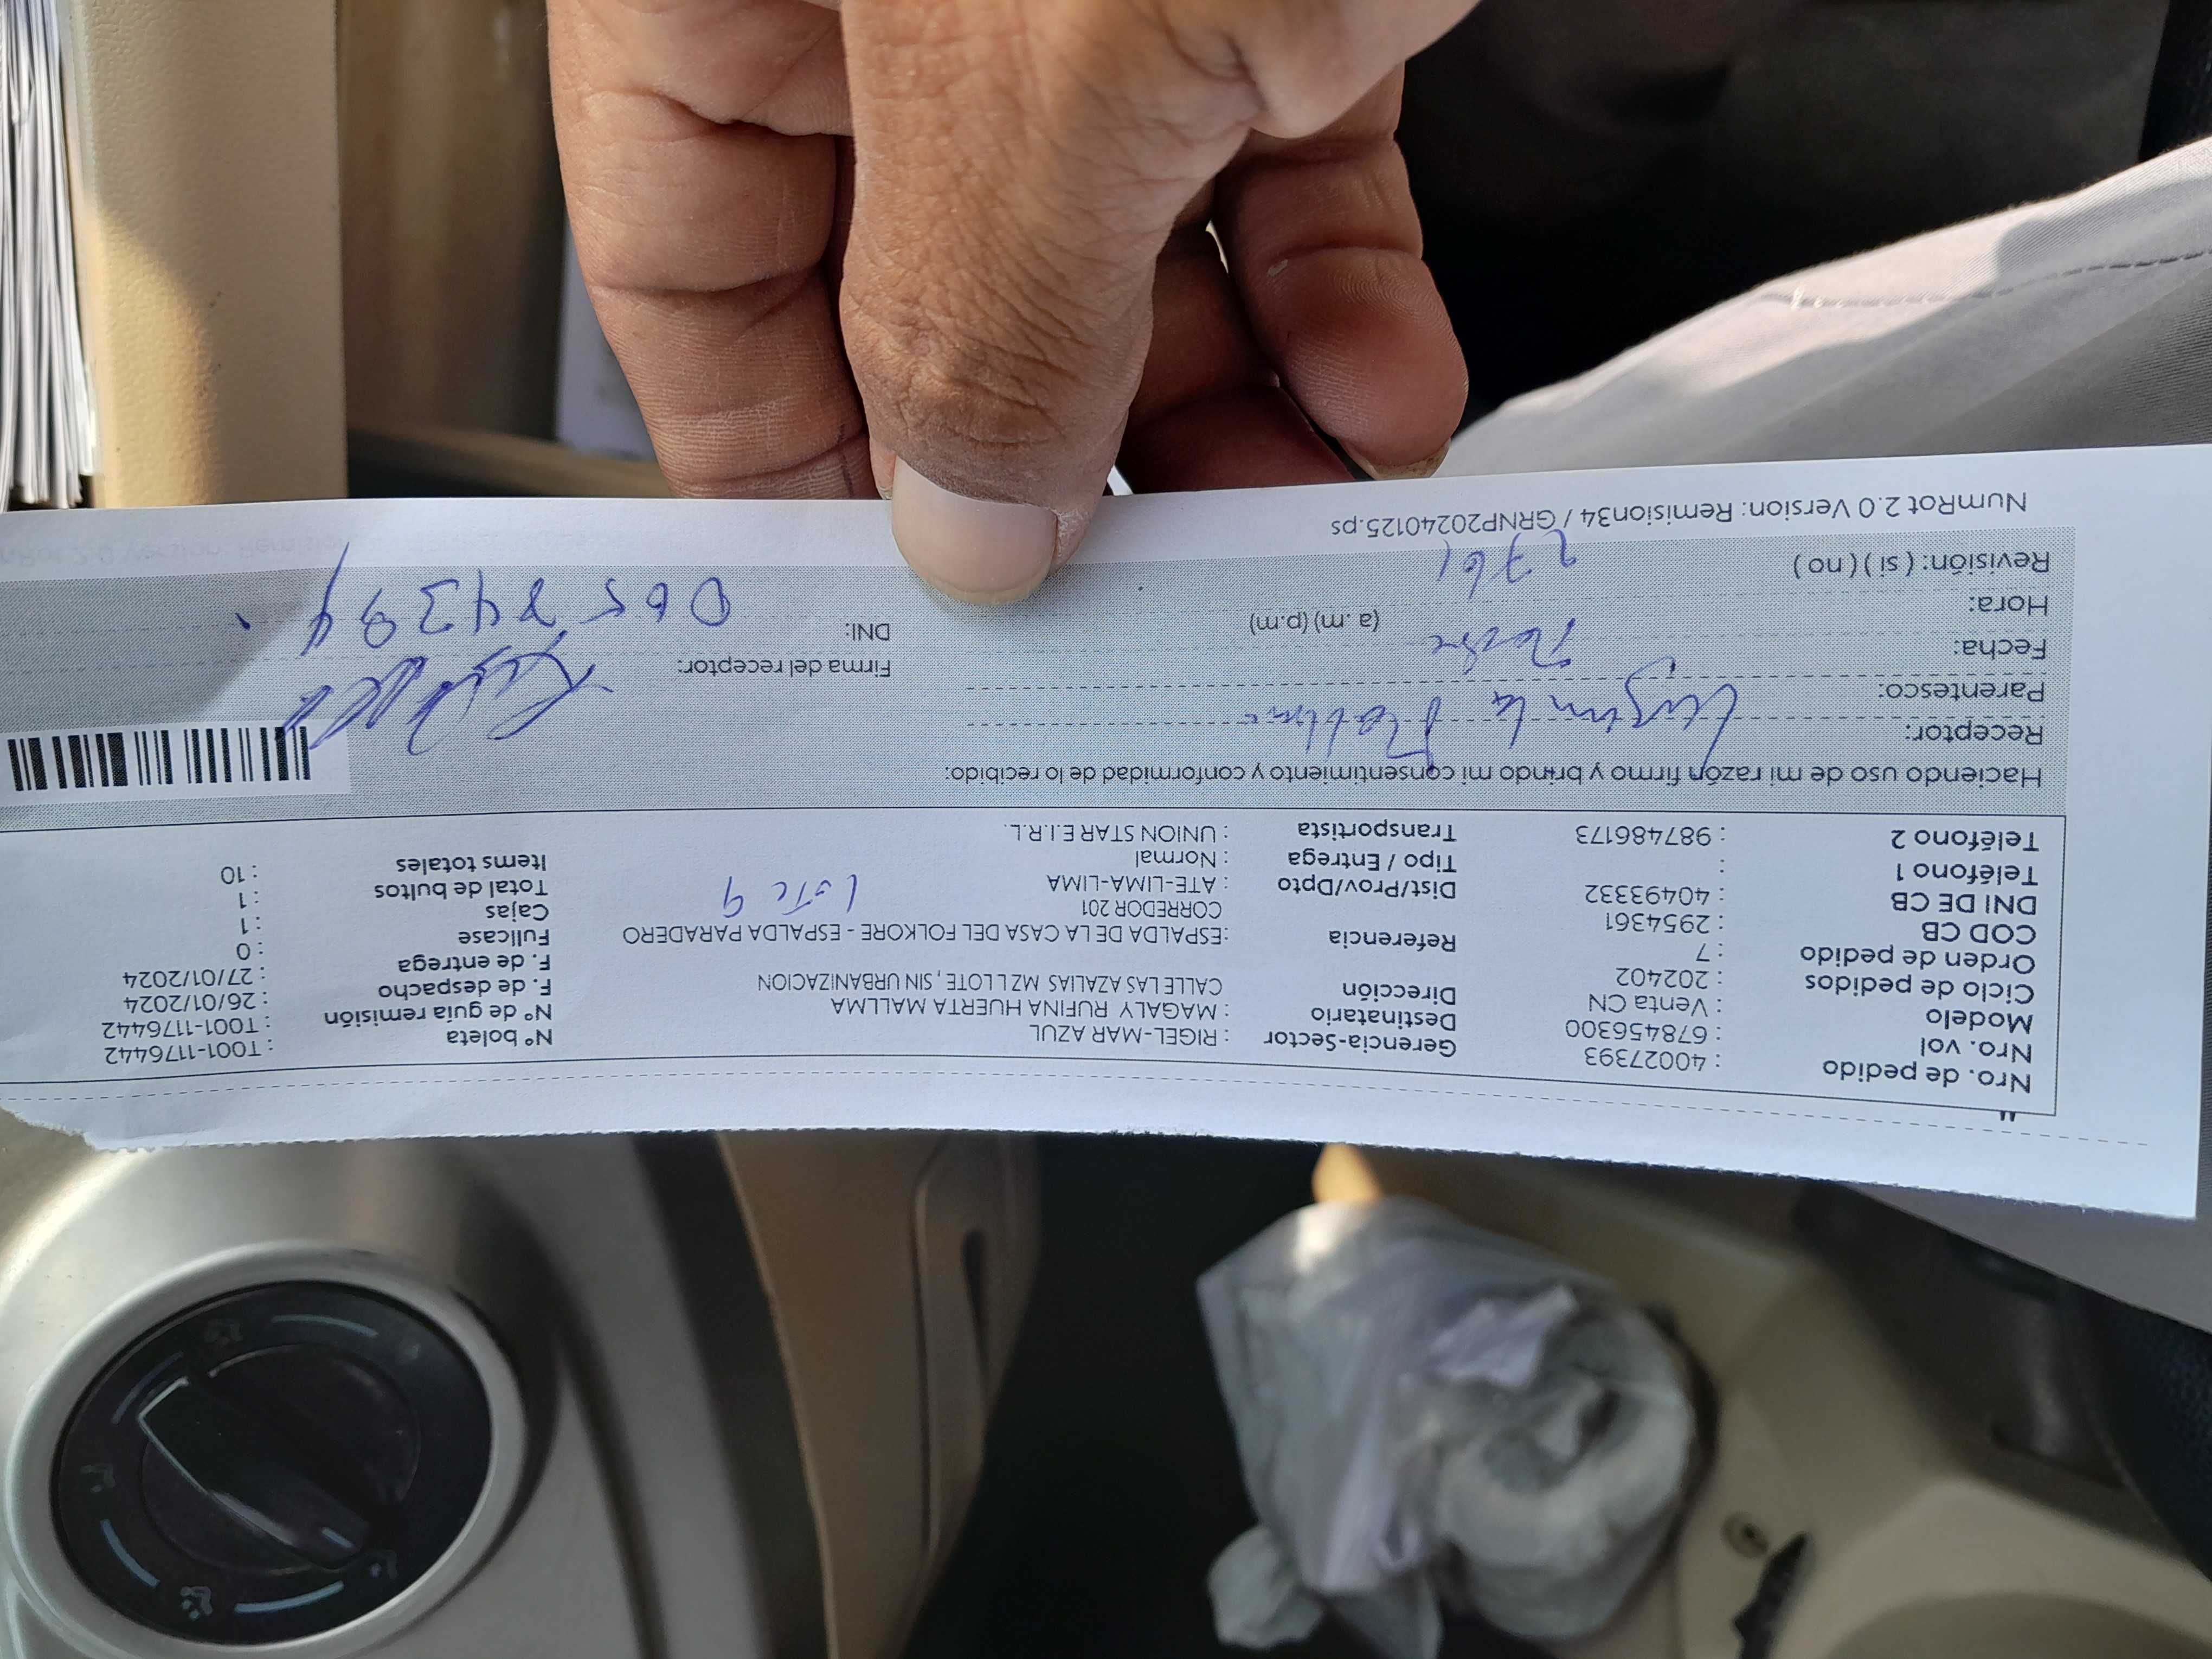 Nro. de pedido : 40027393 Gerencia-Sector : RIGEL-MAR AZUL Nº boleta : T001-1176442
Nro. vol : 678456300 Destinatario : MAGALY RUFINA HUERTA MALLMA Nº de guía remisión : T001-1176442
Modelo : Venta CN Dirección CALLE LAS AZALIAS MZ L LOTE , SIN URBANIZACION F. de despacho : 26/01/2024
Ciclo de pedidos : 202402 F. de entrega : 27/01/2024
Orden de pedido : 7 Referencia :ESPALDA DE LA CASA DEL FOLKORE - ESPALDA PARADERO Fullcase : 0
COD CB : 2954361 CORREDOR 201 Lote 9 Cajas : 1
DNI DE CB : 40493332 Dist/Prov/Dpto : ATE-LIMA-LIMA Total de bultos : 1
Teléfono 1 : Tipo / Entrega : Normal Items totales : 10
Teléfono 2 : 987486173 Transportista : UNION STAR E.I.R.L.
Haciendo uso de mi razón firmo y brindo mi consentimiento y conformidad de lo recibido:
Receptor:
Parentesco: Firma del receptor:
Fecha: DNI:
Hora: (a. m) (p.m)
Revisión: ( si ) ( no )
NumRot 2.0 Version: Remision34 / GRNP20240125.ps